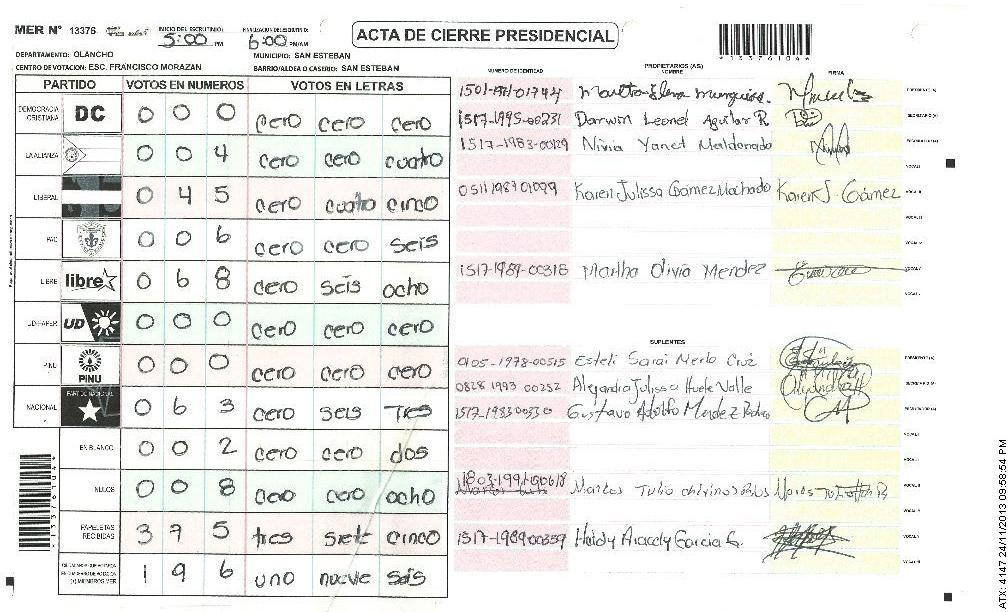 MER N° 13376 INICIO DEL ESCRUTINIO: 5:00 PM FINALIZACION DEL ESCRUTINIO: 6:00 PM/AM
ACTA DE CIERRE PRESIDENCIAL
DEPARTAMENTO: OLANCHO MUNICIPIO: SAN ESTEBAN
CENTRO DE VOTACION: ESC. FRANCISCO MORAZAN BARRIO/ALDEA O CASERIO: SAN ESTEBAN
PARTIDO VOTOS EN NUMEROS VOTOS EN LETRAS
DEMOCRACIA CRISTIANA DC 0 0 0 cero cero cero
LA ALIANZA 0 0 4 cero cero cuatro
LIBERAL 0 4 5 cero cuatro cinco
PAC 0 0 6 cero cero seis
LIBRE libre 0 6 8 cero seis ocho
UD-FAPER UD 0 0 0 cero cero cero
PINU PINU 0 0 0 cero cero cero
NACIONAL PARTIDO NACIONAL 0 6 3 cero seis Tres
EN BLANCO 0 0 2 cero cero dos
NULOS 0 0 8 cero cero ocho
PAPELETAS RECIBIDAS 3 7 5 tres siete cinco
1 9 6 uno nueve seis
*13376104*
NUMERO DE IDENTIDAD PROPIETARIOS (AS) NOMBRE FIRMA
*13376104*
Martha Elena Munguia. PRESIDENTE (A)
1517-1995-00231 Darwin Leonel Aguilar R SECRETARIO (A)
1517-1983-00129 Nivia Yanet Maldonado ESCRUTADOR (A)
VOCAL I
0511198701099 Karen Julissa Gómez Machado Karen J. Gómez VOCAL II
VOCAL III
VOCAL IV
1517-1989-00318 Martha Olivia Mendez VOCAL V
SUPLENTES
0105-1978-00515 Esteli Sarai Merlo Cruz PRESIDENTE (A)
0828 1993 00252 Alejandra Julissa Huete Valle SECRETARIO (A)
1517-1983 00330 Gustavo Adolfo Mendez ESCRUTADOR (A)
VOCAL I
Marcos Tulio VOCAL II
1517-1989 00359 Haidy Aracely Garcia G.
ATX: 4147 24/11/2013 09:58:54 PM